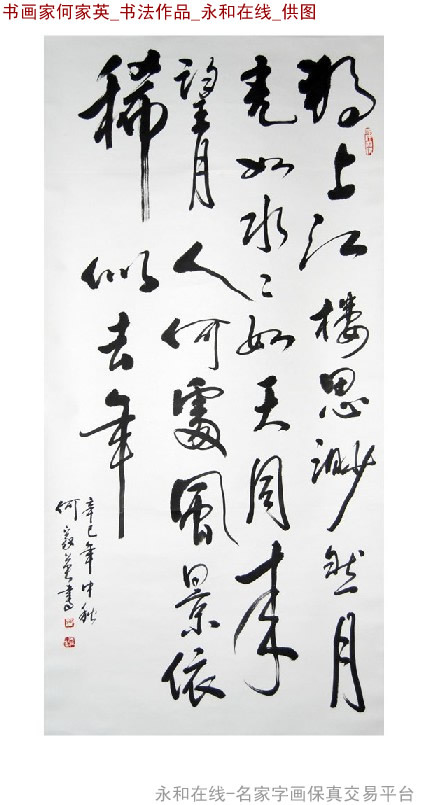 书画家何家英_书法作品_永和在线_供图
獨上江楼思渺然月
光如水々如天同来
望月人何處風景依
稀似去年
辛巳年中秋
何家英書
永和在线-名家字画保真交易平台